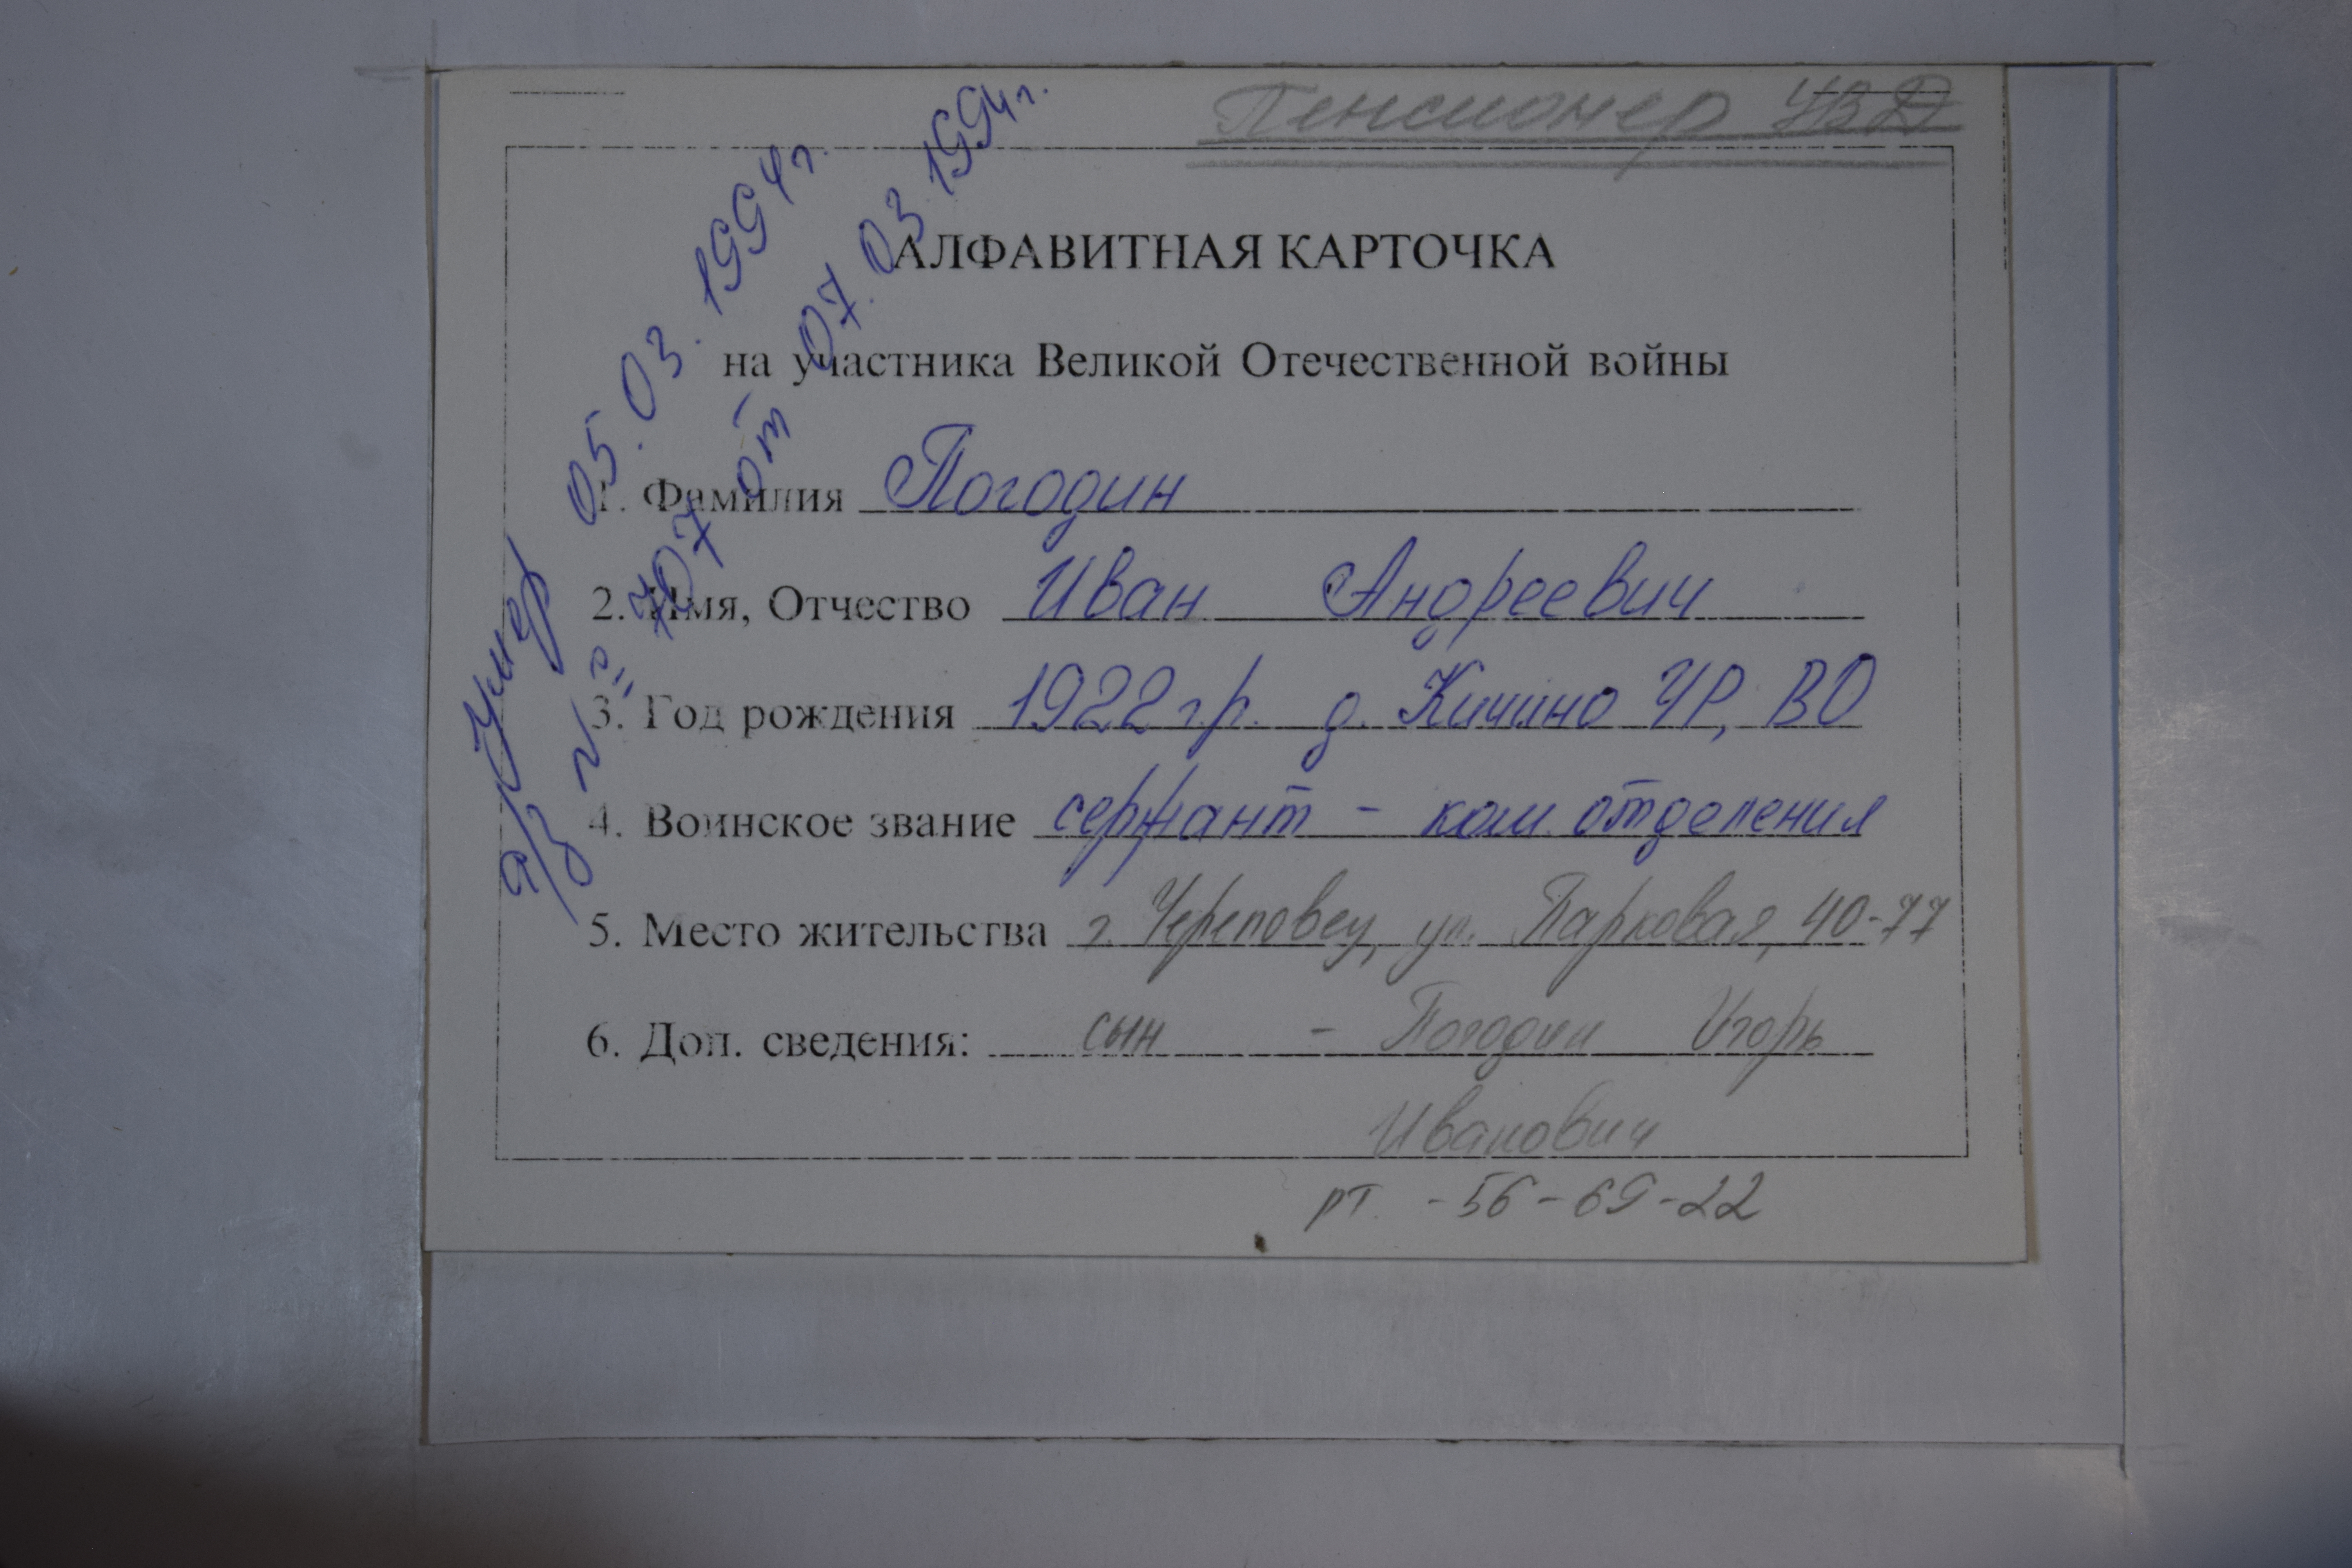 Пенсионер УВД
АЛФАВИТНАЯ КАРТОЧКА
на участника Великой Отечественной войны
1. Фамилия Погодин
2. Имя, Отчество Иван Андреевич
3. Год рождения 1922 г.р. д. Кичино ЧР, ВО
4. Воинское звание сержант - ком. отделения
5. Место жительства г. Череповец, ул. Парковая, 40-77
6. Доп. сведения: сын - Погодин Игорь
Иванович
рт. - 56-69-22
Умер 05.03.1994 г.
а/з № 707 от 07.03.1994 г.